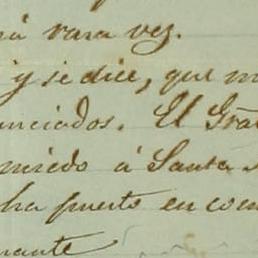 rá rara vez.
y se dice, que m
unciados. El Gra
miedo á Santa
ha puesto en com
rante